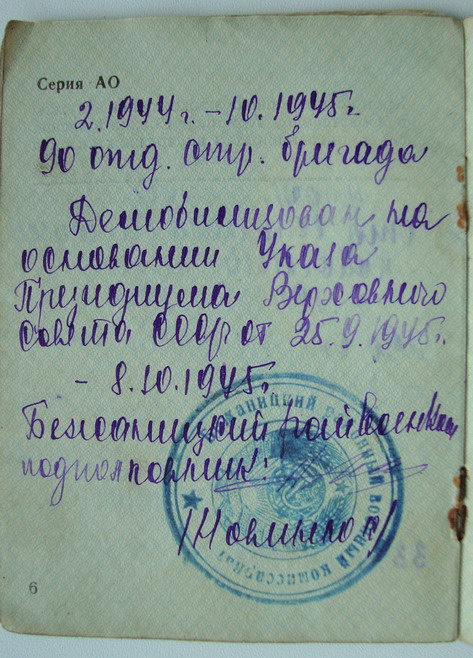 Серия АО
2.1944 г. – 10.1945 г.
90 отд. стр. бригада
Демобилизован на
основании Указа
Президиума Верховного
Совета СССР от 25.9.1945 г.
– 8.10.1945 г.
Бежаницкий райвоенком
подполковник:
военный комиссариат
6